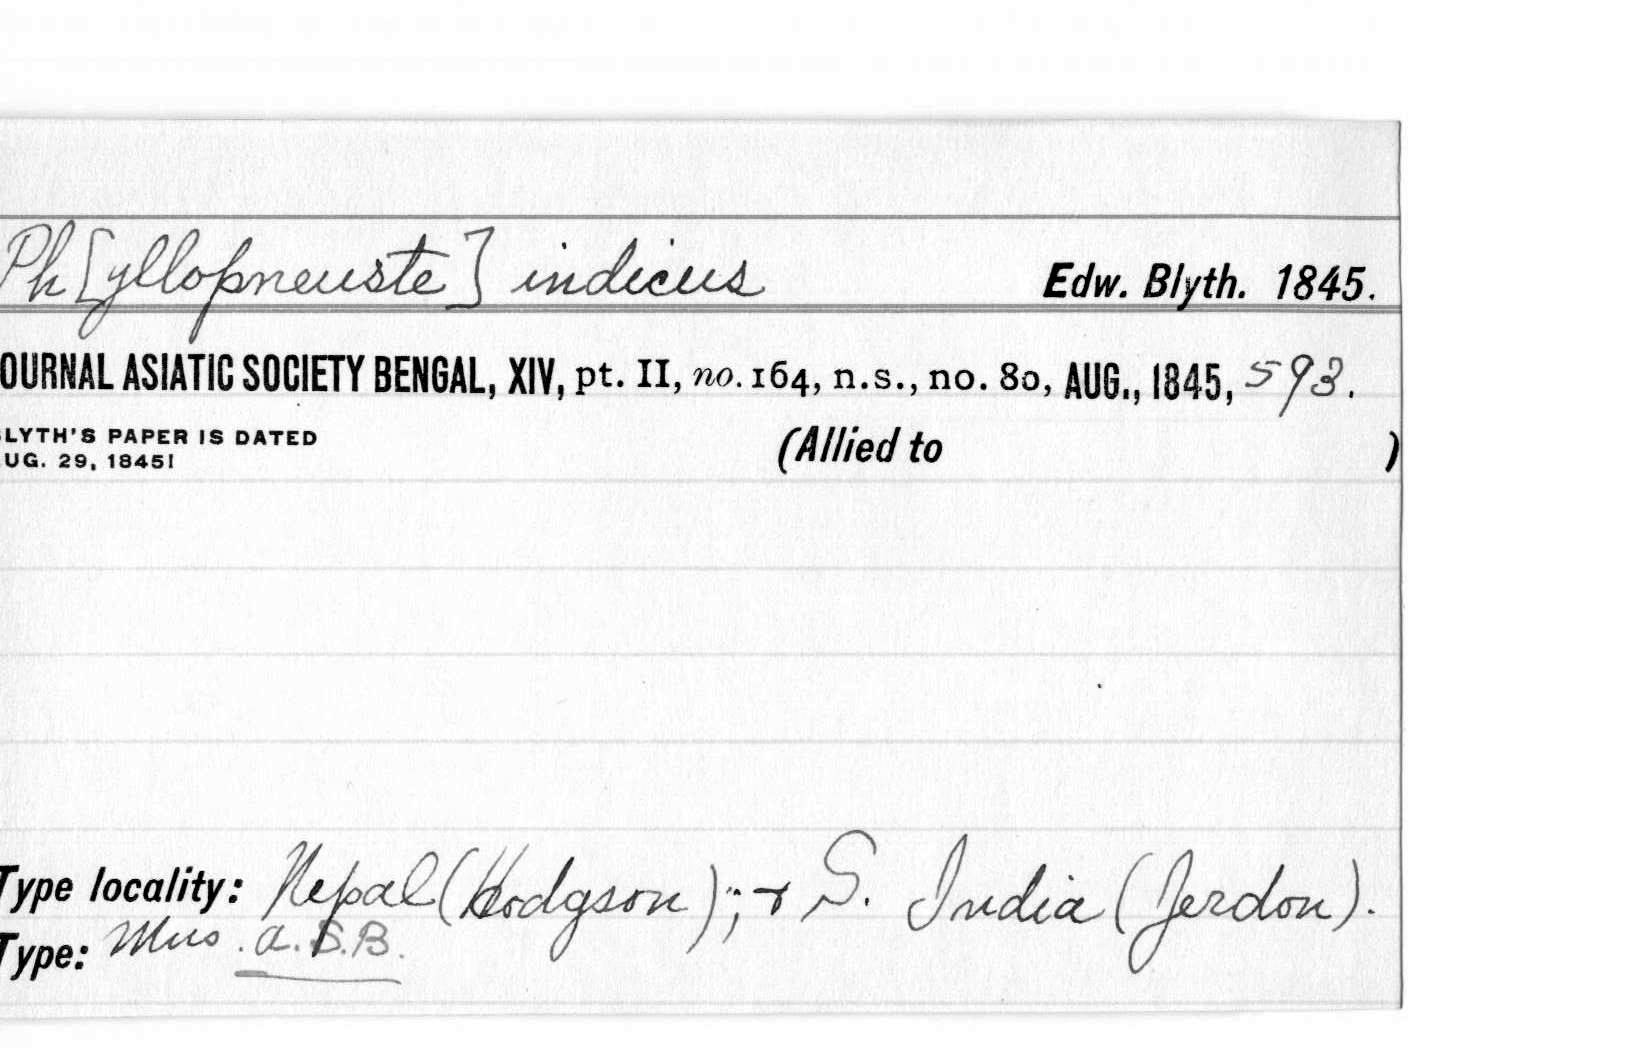 Ph[yllopneuste] indicus Edw. Blyth. 1845.
OURNAL ASIATIC SOCIETY BENGAL, XIV, pt. II, no. 164, n.s., no. 80, AUG., 1845, 593.
LYTH'S PAPER IS DATED (Allied to )
UG. 29, 1845!
Type locality: Nepal (Hodgson); + S. India (Jerdon).
Type: Mus. A.S.B.